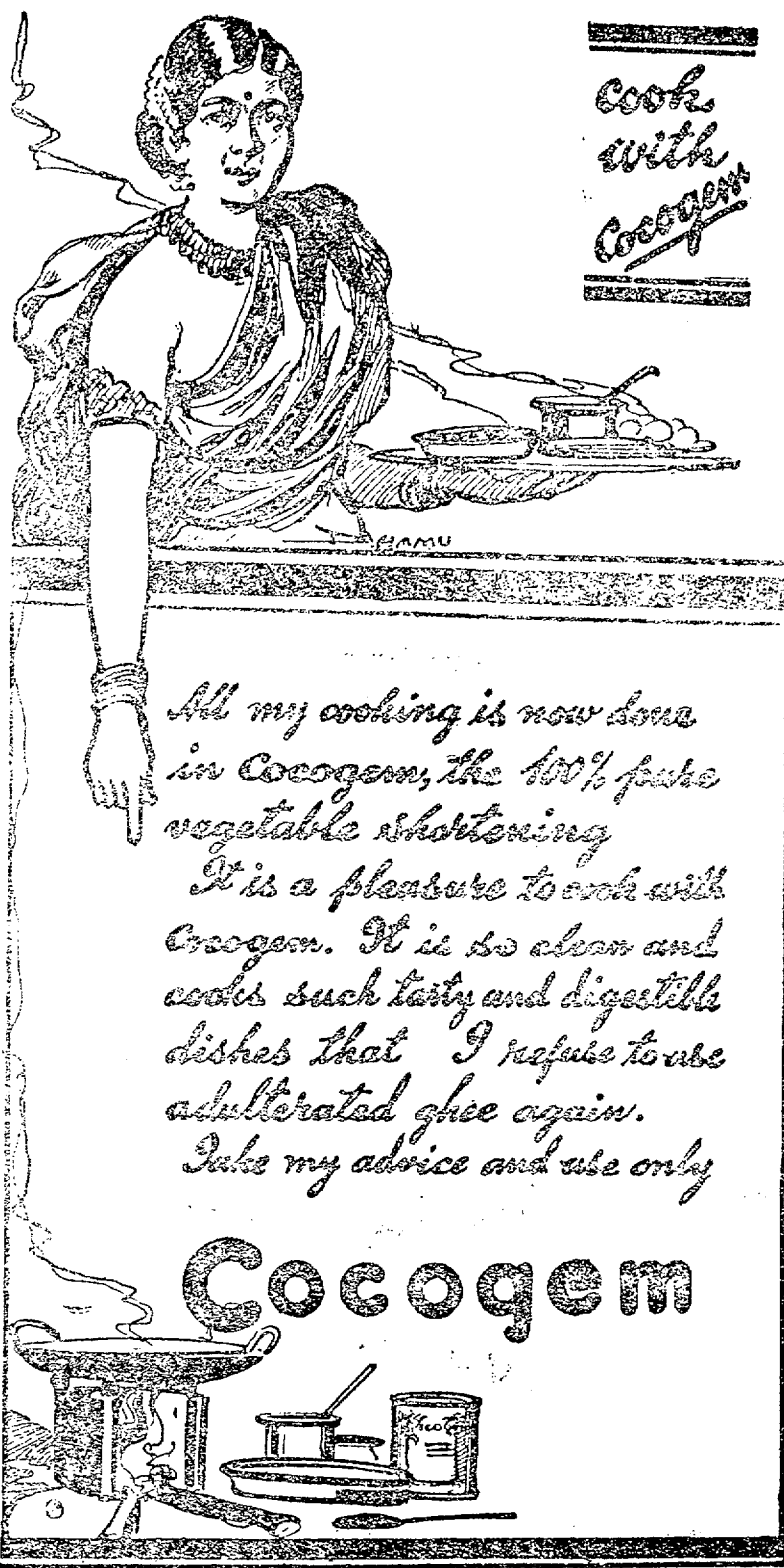 cook
with
Cocogem
All my cooking is now done
in Cocogem, the 100% pure
vegetable shortening
It is a pleasure to cook with
Cocogem. It is so clean and
cooks such tasty and digestible
dishes that I refuse to use
adulterated ghee again.
Take my advice and use only
Cocogem